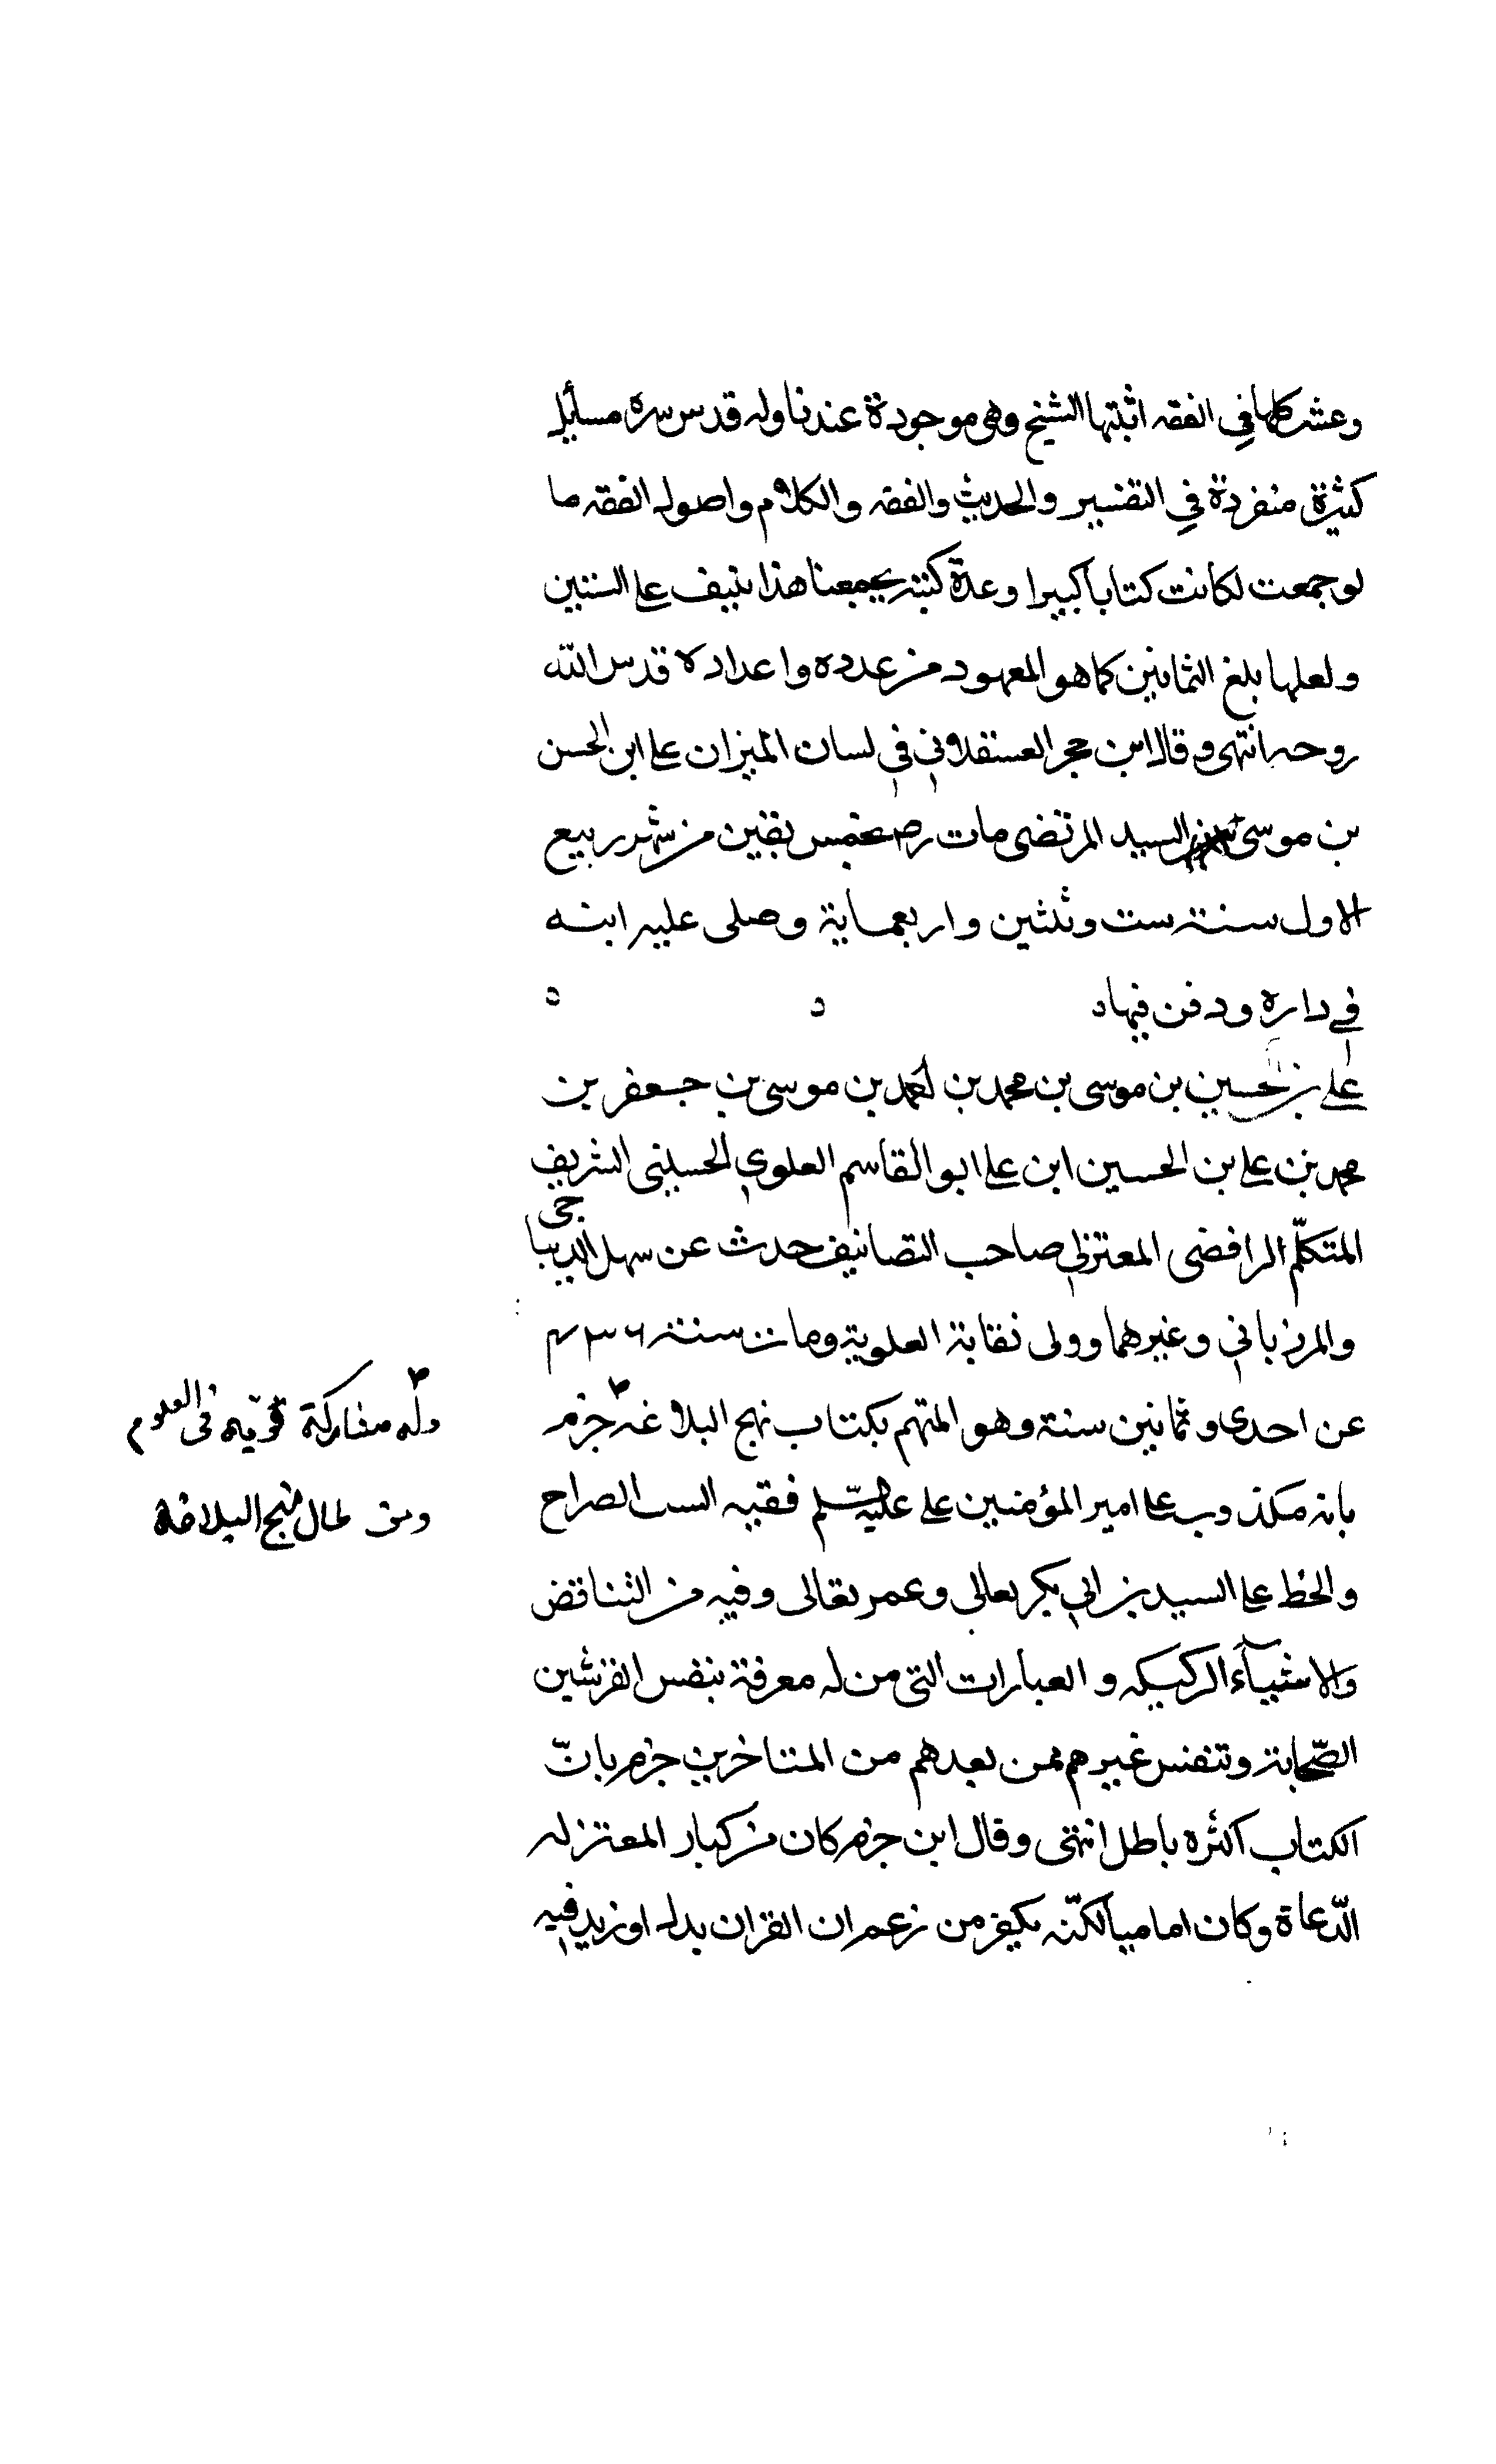 وعشر كلها في الفقه اثبتها الشيخ وهي موجودة عندنا وله قدس سره مسائل
كثيرة منفردة في التفسير والحديث والفقه والكلام واصول الفقه ما
لو جمعت لكانت كتابا كبيرا وعدة كتبه بجمعنا هذا ينيف على الستين
ولعلها بلغ الثمانين كما هو المعهود من عدده واعداده قدس الله
روحه انتهى وقال ابن حجر العسقلاني في لسان الميزان علي ابن الحسن
بن موسى السيد المرتضى مات رض لخمس بقين من شهر ربيع
الاول سنة ست وثلثين واربعماية وصلى عليه ابنه
في داره ودفن فيها
علي بن الحسين بن موسى بن محمد بن احمد بن موسى بن جعفر بن
محمد بن علي بن الحسين ابن علي ابو القاسم العلوي الحسيني الشريف
المتكلّم الرافضي المعتزلي صاحب التصانيف حدث عن سهل الديباجي
والمرزباني وغيرهما وولى نقابة العلوية ومات سنة ٤٣٦
عن احدى وثمانين سنة وهو المتهم بكتاب نهج البلاغه جزم
وله مشاركة قوية في العلوم
ومن طال نهج البلاغة
بانه مكذوب على امير المؤمنين علي عليه السّلم ففيه السب الصراح
والحط على السيدين ابي بكر تعالى وعمر تعالى وفيه من التناقض
والاشيآء الركيكه والعبارات التي من له معرفة بنفس القرشين
الصّحابة وتنفس غيرهم ممن بعدهم من المتاخرين جزم بانّ
الكتاب اكثره باطل انتهى وقال ابن حزم كان من كبار المعتزله
الدّعاة وكان اماميا لكنّه يكفر من زعم ان القران بدل او زيد فيه